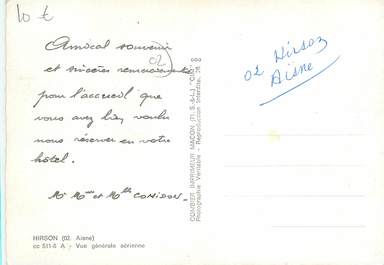 10 €
Amical souvenir
02
et sincères remerciements
pour l'accueil que
vous avez bien voulu
nous réserver en votre
hôtel.
Mr Mme et Mlle
HIRSON (02. Aisne)
cc 511-6 A - Vue générale aérienne
COMBIER IMPRIMEUR MACON (71. S.-&-L.) "CIM"
Photographie Véritable - Reproduction Interdite.
02 Hirson
Aisne